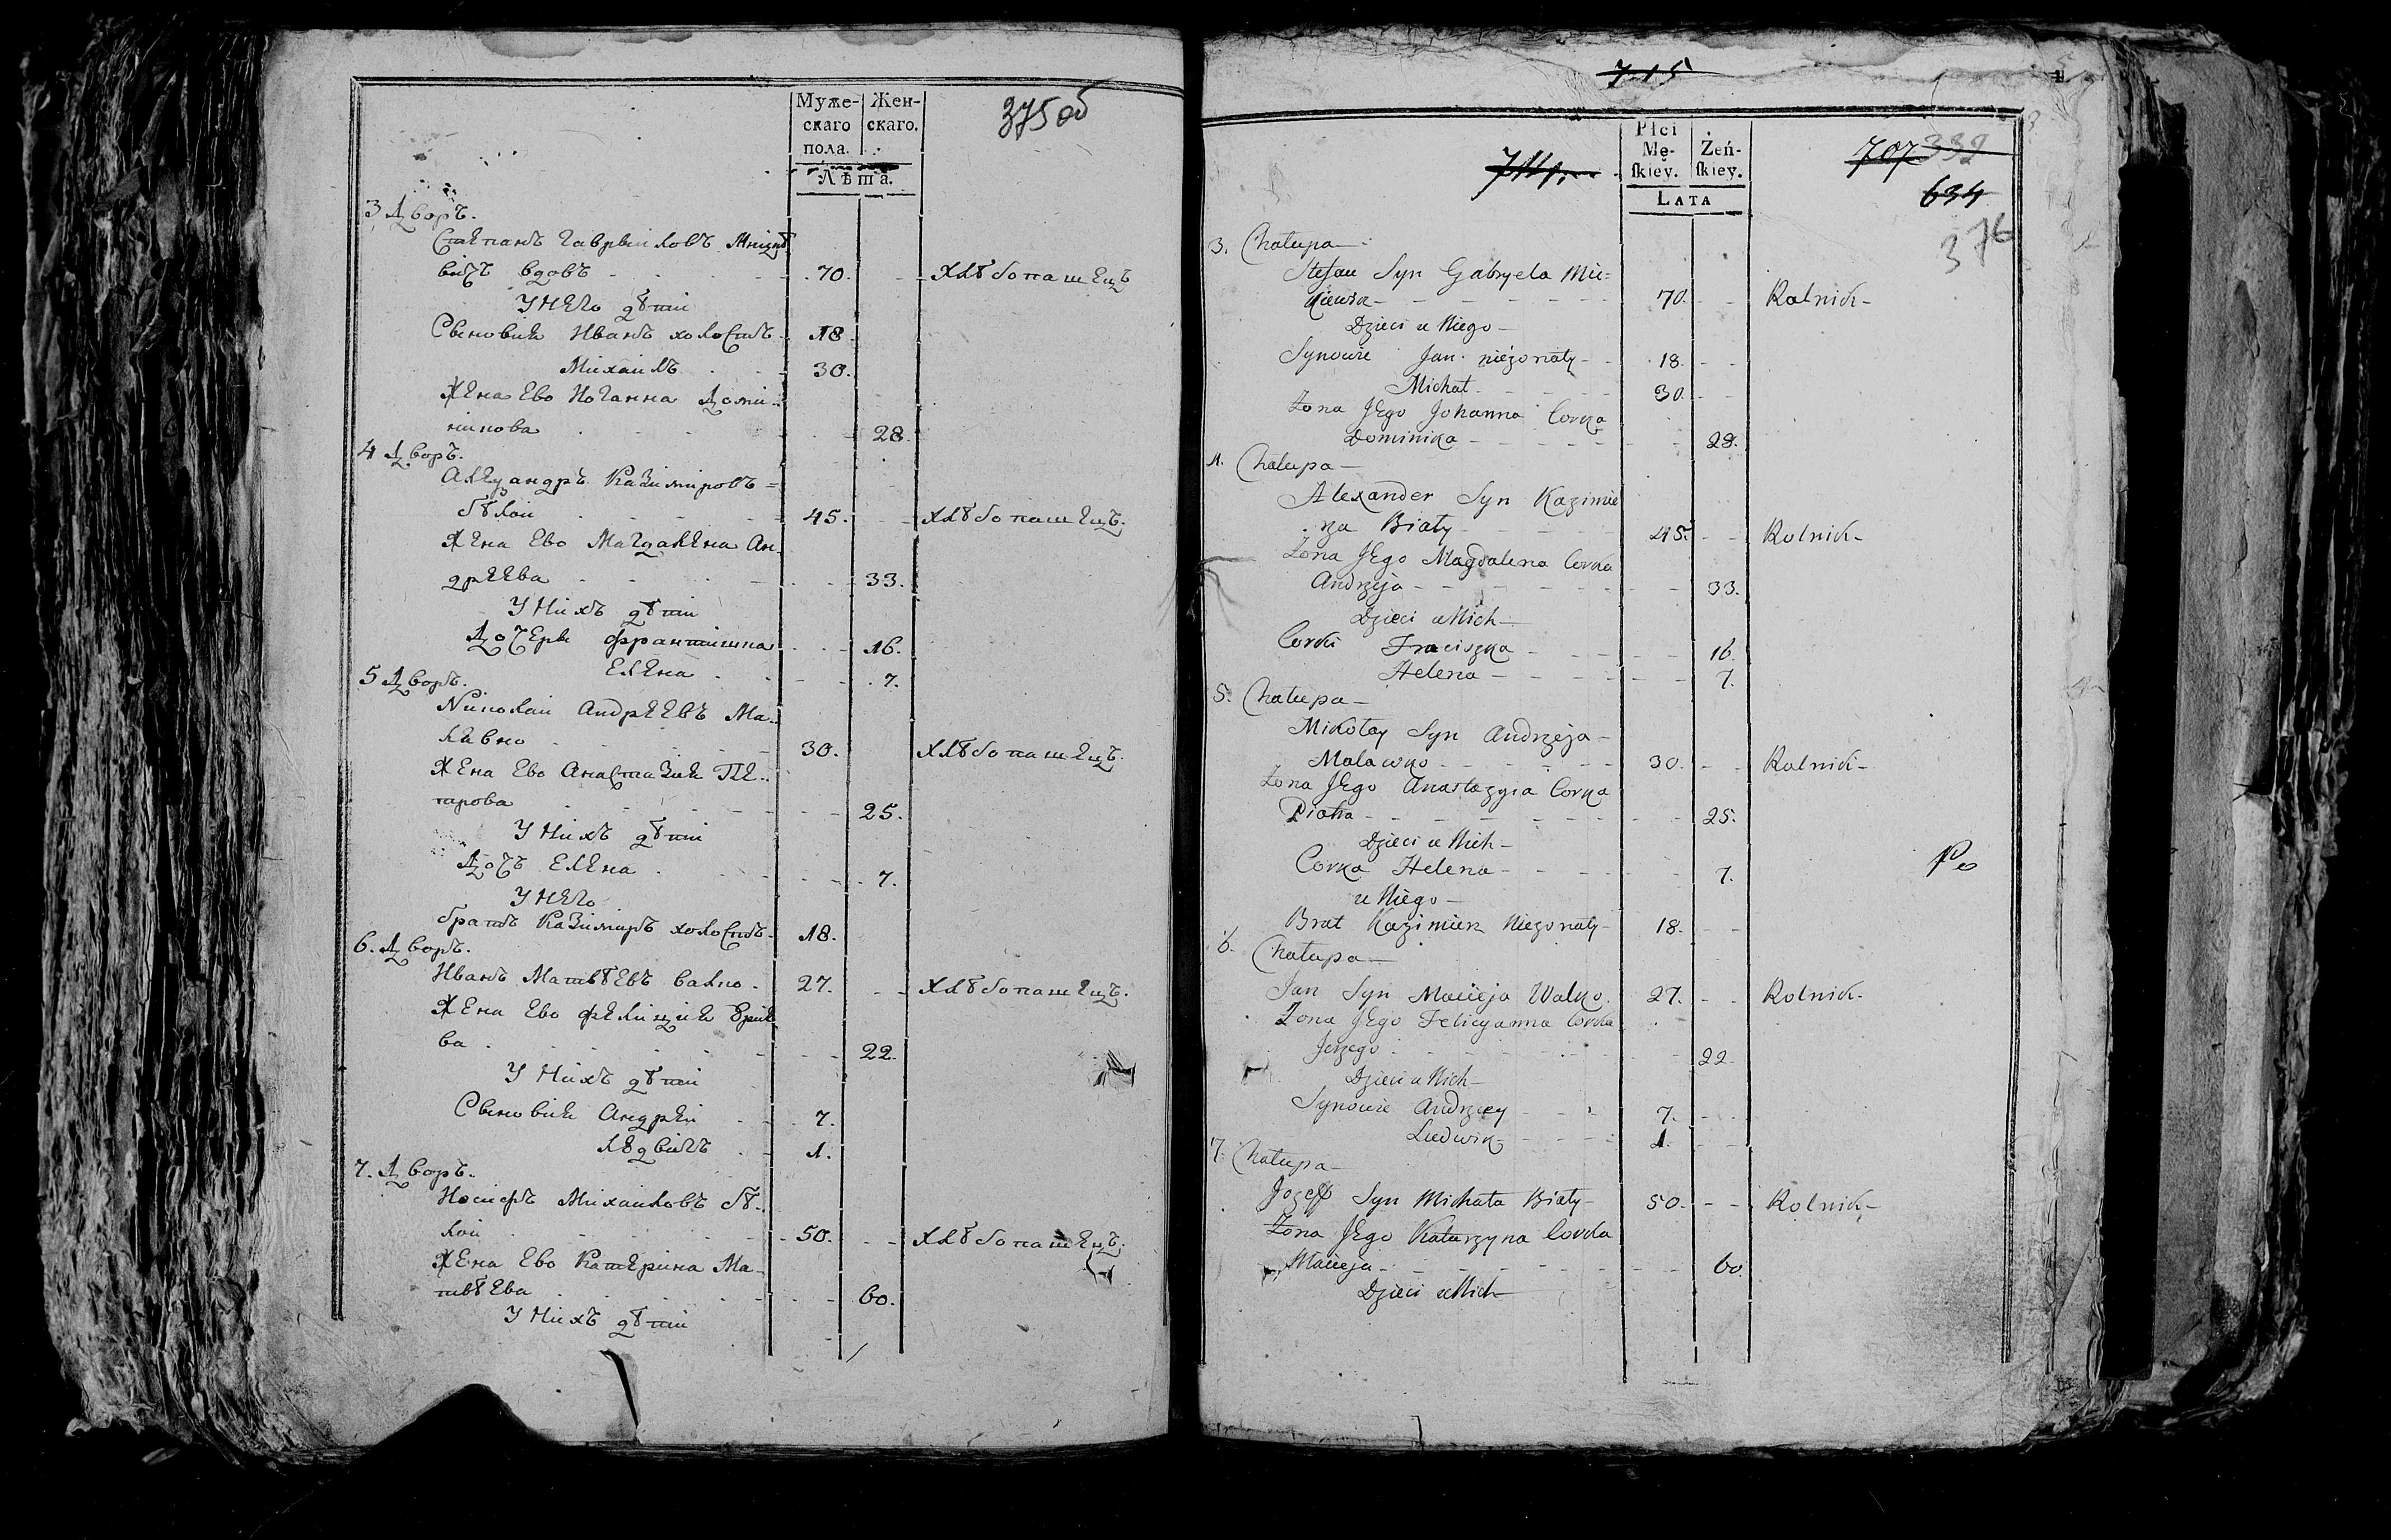 Муже- Жен-
скаго скаго.
пола.
375 об
Лѣта.
3 Дворъ.
Степанъ Гаврыиловъ Мицке
вичъ вдовъ 70. хлѣбопашецъ
У него дѣти
Сыновья Иванъ холостъ 18
Михаилъ 30.
Жена ево Иоганна Доми-
никова 28.
4 Дворъ.
Алеѯандръ Казимировъ
бѣлои 45. хлѣбопашецъ.
Жена ево Магдалена Ан-
дреева 33.
У нихъ дѣти
Дочери Францишка 16.
Елена 7.
5 Дворъ.
Николаи Андреевъ Ма-
лявко 30. хлѣбопашецъ.
Жена ево Анастазия Пе-
трова 25.
У нихъ дѣти
Дочь Елена 7.
У него
братъ Казимиръ холостъ 18.
6. Дворъ.
Иванъ Матвѣевъ валко 27. хлѣбопашецъ.
Жена ево Фелиция Юрье
ва 22.
У нихъ дѣти
Сыновья Андреи 7.
Людвигъ 1.
7. Дворъ.
Иосифъ Михаиловъ бѣ-
лои 50. хлѣбопашецъ.
Жена ево Катерина Ма-
твѣева 60.
У нихъ дѣти
715
Płci
Mę- Żeń-
ſkiey. ſkiey.
707 339
634
376
LATA
3. Chałupa
Stefan Syn Gabryela Mic=
kiewicz 70. Rolnik
Dzieci u Niego
Synowie Jan nieżonaty 18.
Michał 30.
Żona Jego Johanna Corka
Dominika 28.
4. Chałupa
Alexander Syn Kazimie
rza Biały 45. Rolnik
Żona Jego Magdalena Corka
Andrzeja 33.
Dzieci u Nich
Corki Fraciszka 16.
Helena 7.
5. Chałupa
Mikołay Syn Andrzeja
Malawko 30. Rolnik
Żona Jego Anastazyia Corka
Piotra 25.
Dzieci u Nich
Corka Helena 7.
u Niego
Brat Kazimierz Nieżonaty 18.
6. Chałupa
Jan Syn Macieja Walko 27. Rolnik
Żona Jego Felicyanna Corka
Jerzego 22.
Dzieci u Nich
Synowie Andrzey 7.
Ludwik 1.
7. Chałupa
Jozeff Syn Michała Biały 50. Rolnik
Żona Jego Katarzyna Corka
Macieja 60
Dzieci u Nich